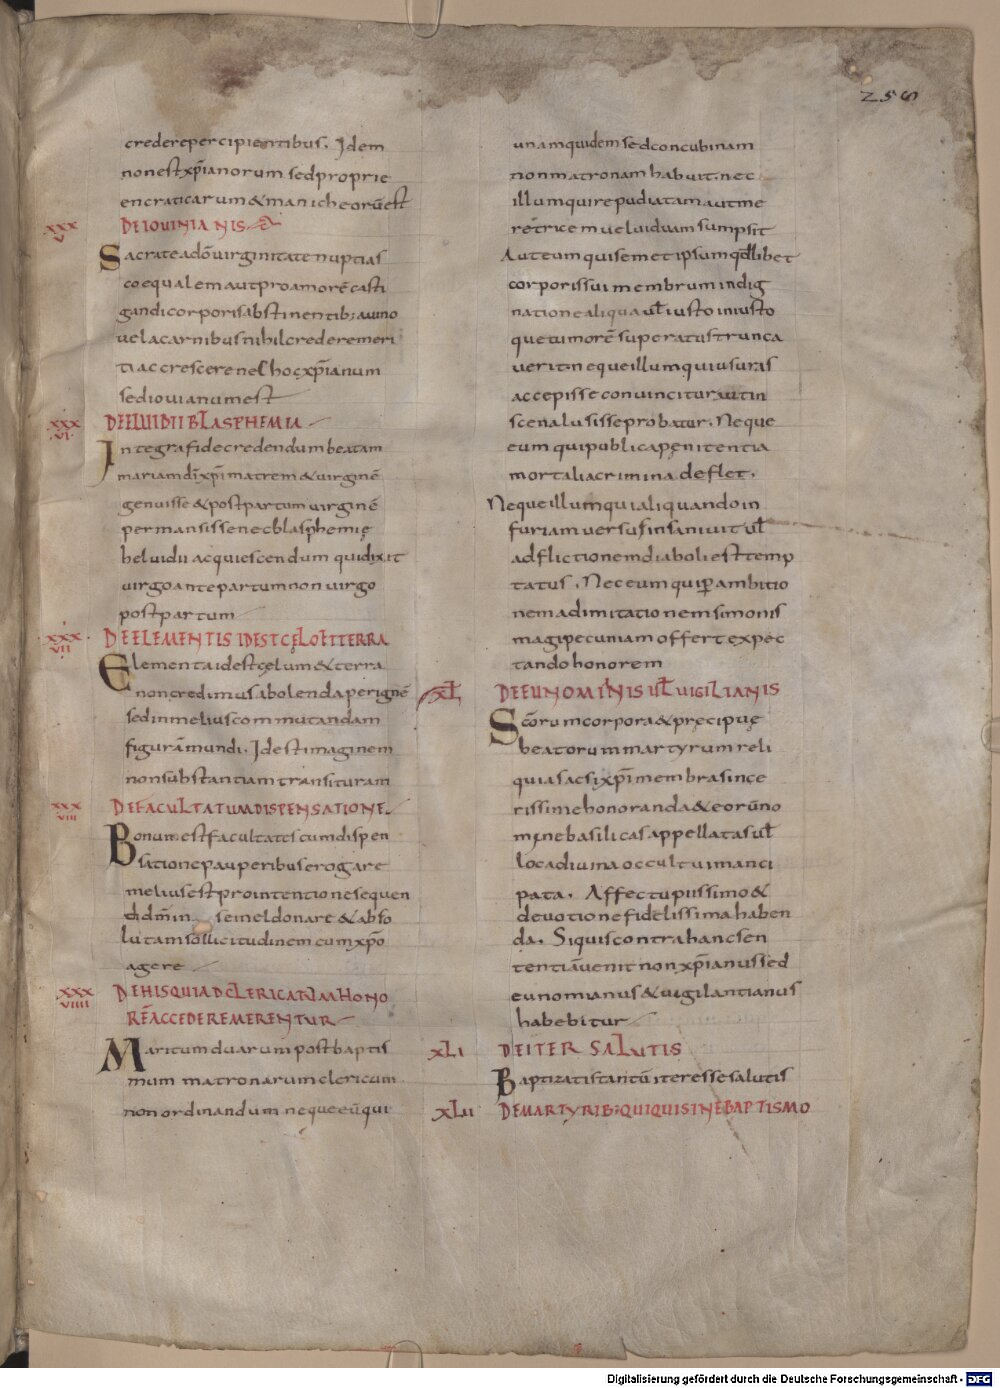 255
credere percipientibus. Idem
non est xp̄ianorum sed proprie
encraticarum & manicheorū est
XXXV DE IOUINIANIS
Sacrate a dō uirginitate nuptias
coequalem aut pro amorē casti
gandi corporis abstinentib; a uino
uel a carnibus nihil credere meri
ti accrescere nec hoc xp̄ianum
sed iouianum est
XXXVI DE ELUIDII BLASPHEMIA
Integra fide credendum beatam
mariam dī xp̄i matrem & uirginē
genuisse & post partum uirginē
permansisse nec blasphemię
heluidii acquiescendum qui dixit
uirgo ante partum non uirgo
post partum
XXXVII DE ELEMENTIS ID EST CĘLO ET TERRA
Elementa id est cęlum & terra
non credimus abolenda per ignē
sed in melius commutandam
figurā mundi. Id est imaginem
non substantiam transituram
XXXVIII DE FACULTATUM DISPENSATIONE
Bonum est facultates cum dispen
satione pauperibus erogare
melius est pro intentione sequen
di dm̄in semel donare & abso
lutam sollicitudinem cum xp̄o
agere
XXXVIIII DE HIS QUI AD CLERICATŪ UŁ HONO
RĒ ACCEDERE MERENTUR
Maritum duarum post baptis
mum matronarum clericum
non ordinandum neque eū qui
unam quidem sed concubinam
non matronam habuit. nec
illum qui repudiatam aut me
retricem uel uiduam sumpsit
Aut eum qui semet ipsum qđlibet
corporis sui membrum indig
natione aliqua uł iusto iniusto
que timorē superatus trunca
uerit. neque illum qui usuras
accepisse conuincitur aut in
scena lusisse probatur. Neque
eum qui publica pęnitentia
mortalia crimina deflet.
Neque illum qui aliquando in
furiam uersus insaniuit uł
adflictionem diaboli est temp
tatus. Nec eum qui p̱ ambitio
nem ad imitationem simonis
magi pecuniam offert expec
tando honorem
XL DE EUNOMINIS UŁ UIGILIANIS
Scōrum corpora & pręcipuę
beatorum martyrum reli
quias acsi xp̄i membra since
rissime honoranda & eorū no
mine basilicas appellatas uł
loca diuina occultui manci
pata. Affectu piissimo &
deuotione fidelissima haben
da. Si quis contra hanc sen
tentiā uenit non xp̄ianus sed
eunomianus & uigilantianus
habebitur
XLI DE ITER SALUTIS
Baptizatis tantū iter esse salutis
XLII DE MARTYRIB; QUI QUI SINE BAPTISMO
Digitalisierung gefördert durch die Deutsche Forschungsgemeinschaft - DFG